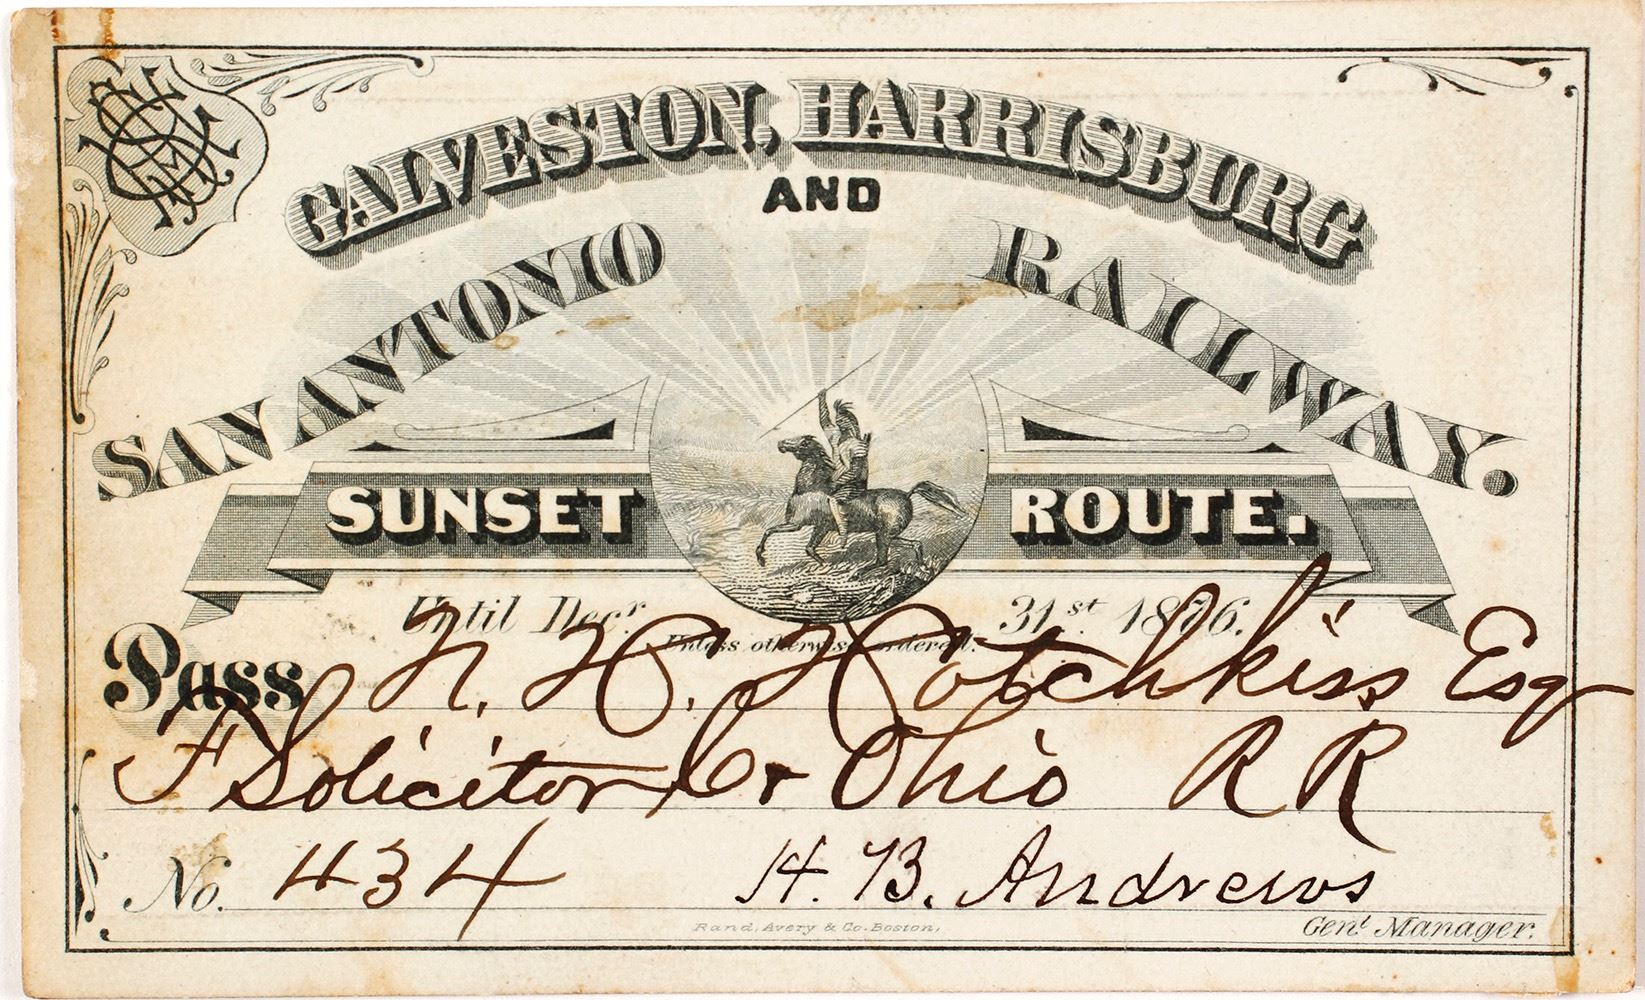 GALVESTON, HARRISBURG
AND
SAN ANTONIO RAILWAY.
SUNSET ROUTE.
Until Decr. 31st. 1876.
Unless otherwise ordered.
Pass N. H. Hotchkiss Esq
F Solicitor C & Ohio RR
No. 434 H. B. Andrews
Rand, Avery & Co. Boston, Genl Manager.